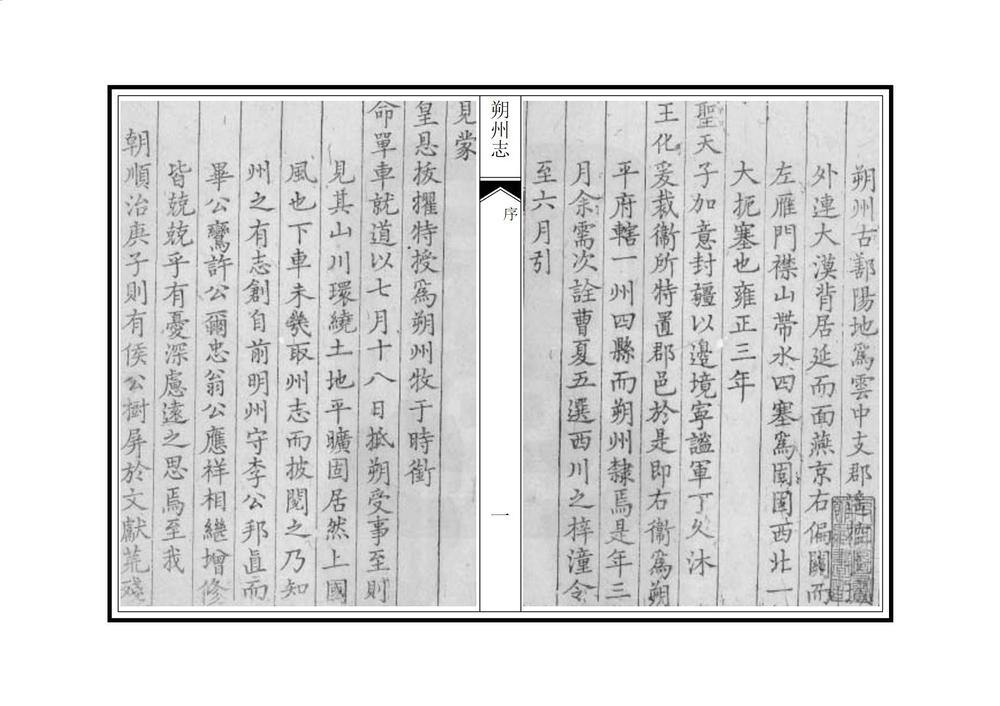 朔州古鄯陽地爲雲中支郡遙控
外連大漠背居延而面燕京右偏關而
左雁門襟山帶水四塞爲固國西北一
大扼塞也雍正三年
聖天子加意封疆以邊境寧謐軍丁久沐
王化爰裁衞所特置郡邑於是即右衞爲朔
平府轄一州四縣而朔州隸焉是年三
月余需次詮曹夏五選西川之梓潼令
至六月引
朔州志
序
一
見蒙
皇恩拔擢特授爲朔州牧于時銜
命單車就道以七月十八日抵朔受事至則
見其山川環繞土地平曠固居然上國
風也下車未幾取州志而披閱之乃知
州之有志創自前明州守李公邦眞而
畢公鸞許公爾忠翁公應祥相繼增修
皆兢兢乎有憂深慮遠之思焉至我
朝順治庚子則有侯公樹屏於文獻荒殘